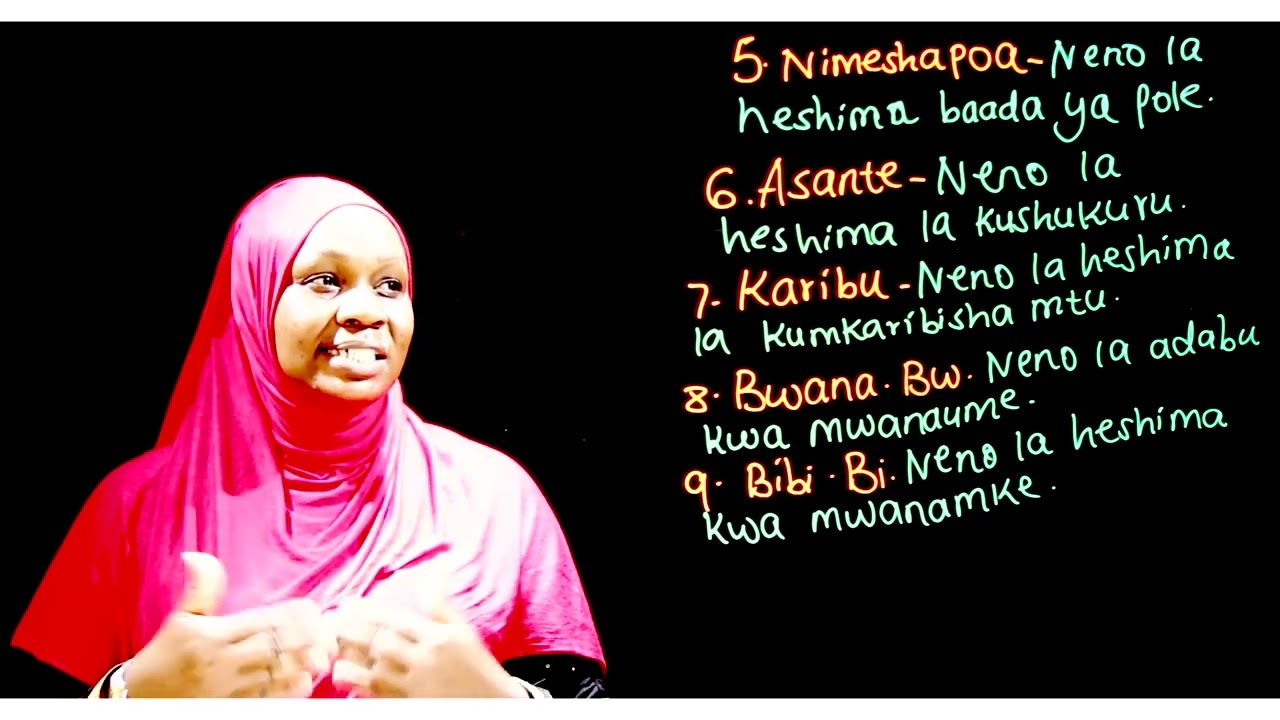 5. Nimeshapoa - Neno la
heshima baada ya pole.
6. Asante - Neno la
heshima la kushukuru.
7. Karibu - Neno la heshima
la kumkaribisha mtu.
8. Bwana. Bw. Neno la adabu
kwa mwanaume.
9. Bibi. Bi. Neno la heshima
kwa mwanamke.